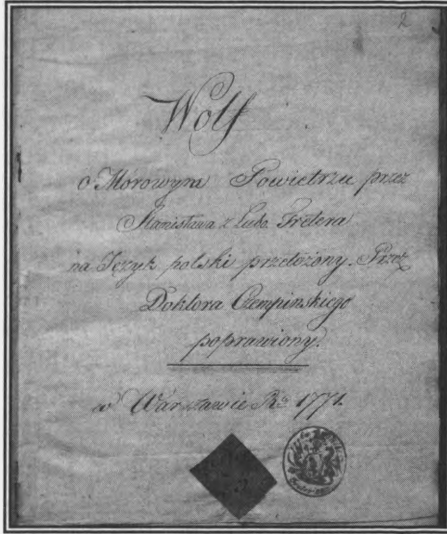 2
Wolf
o Morowym Powietrzu przez
Stanisława z Lubo. Fretera
na Język polski przełożony. Przez
Doktora Czempinskiego
poprawiony.
w Warszawie Rº 1771.